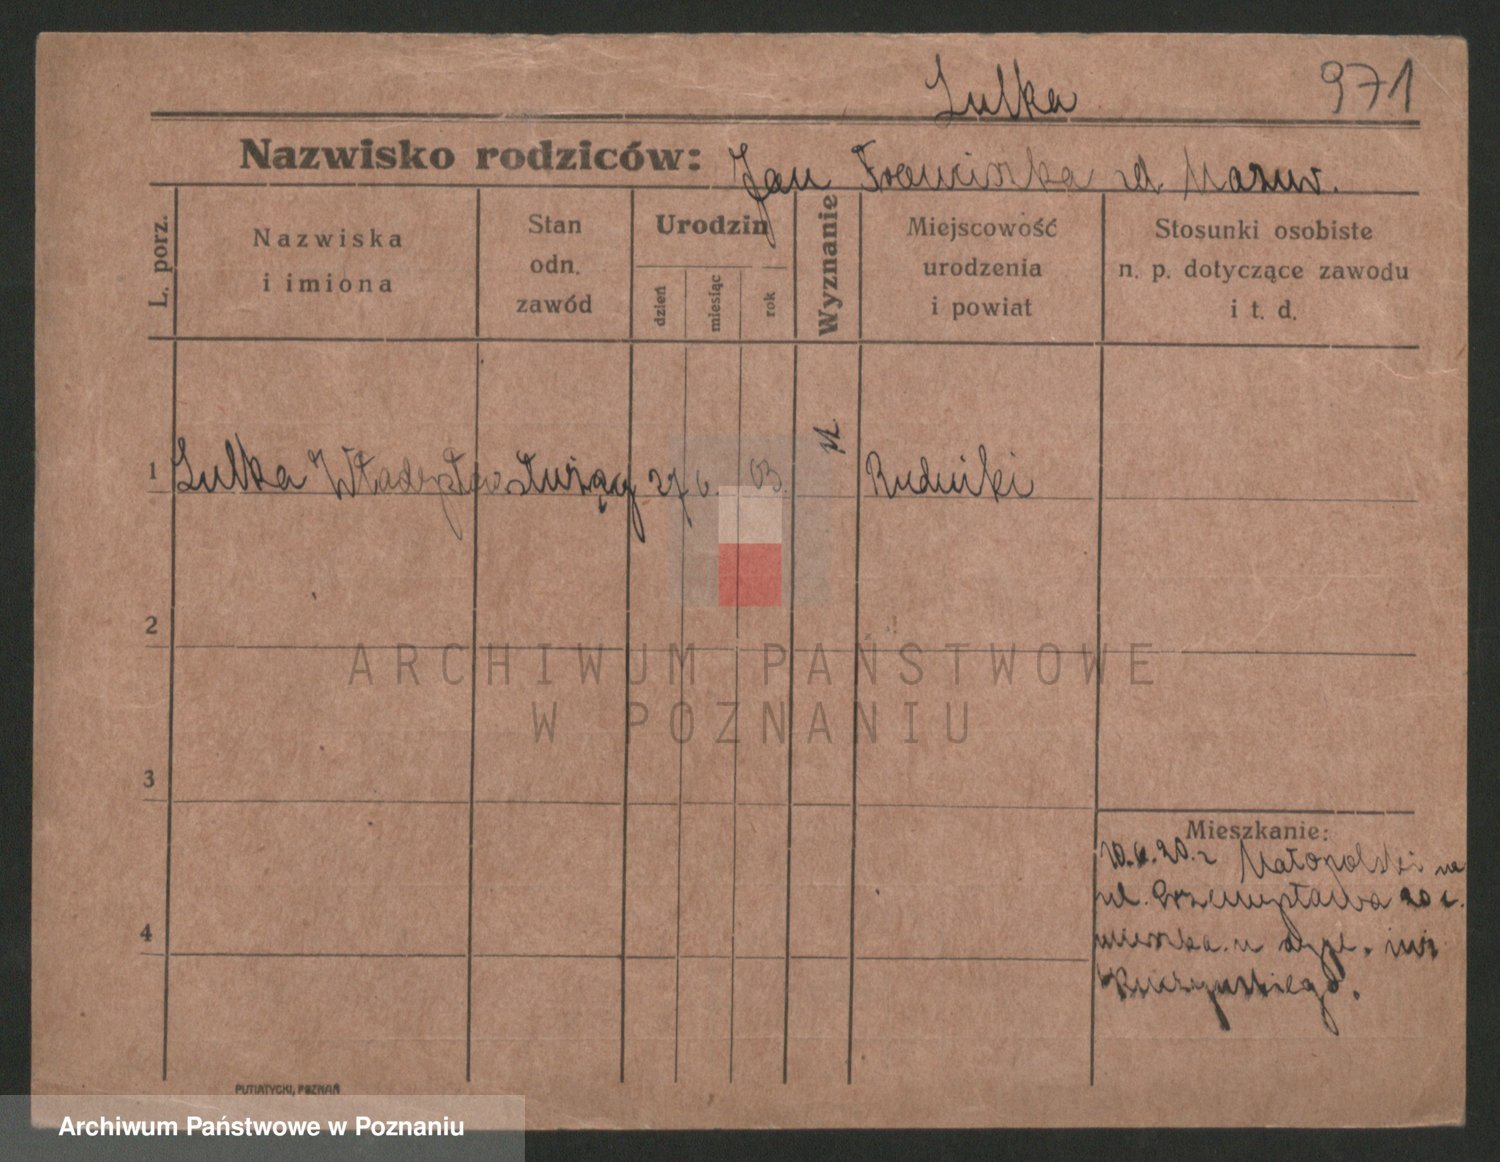 Lulka
971
Nazwisko rodziców: Jan Franciszka zd. Mazur.
L. porz.
Nazwiska
i imiona
Stan
odn.
zawód
Urodzin
dzień
miesiąc
rok
Wyznanie
Miejscowość
urodzenia
i powiat
Stosunki osobiste
n. p. dotyczące zawodu
i t. d.
1 Lulka Władysław służący 27 6. 03. Rudniki
2
3
4
Mieszkanie:
10.6.20. z Małopolski na
ul. Przemysława 20 i.
mieszka. u
PUTIATYCKI, POZNAŃ
ARCHIWUM PAŃSTWOWE
W POZNANIU
Archiwum Państwowe w Poznaniu